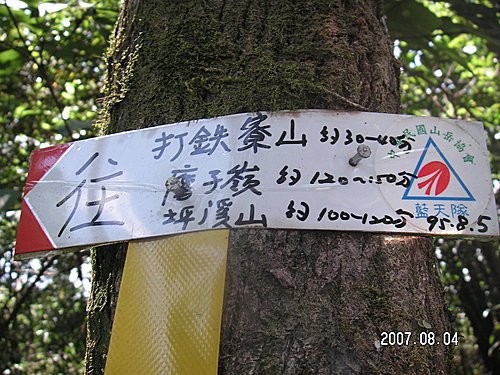 往
打鉄寮山 約30-40分
鹿子嶺 約120~150分
坪溪山 約100-120分
中華民國山岳協會
藍天隊
95.8.5
2007.08.04